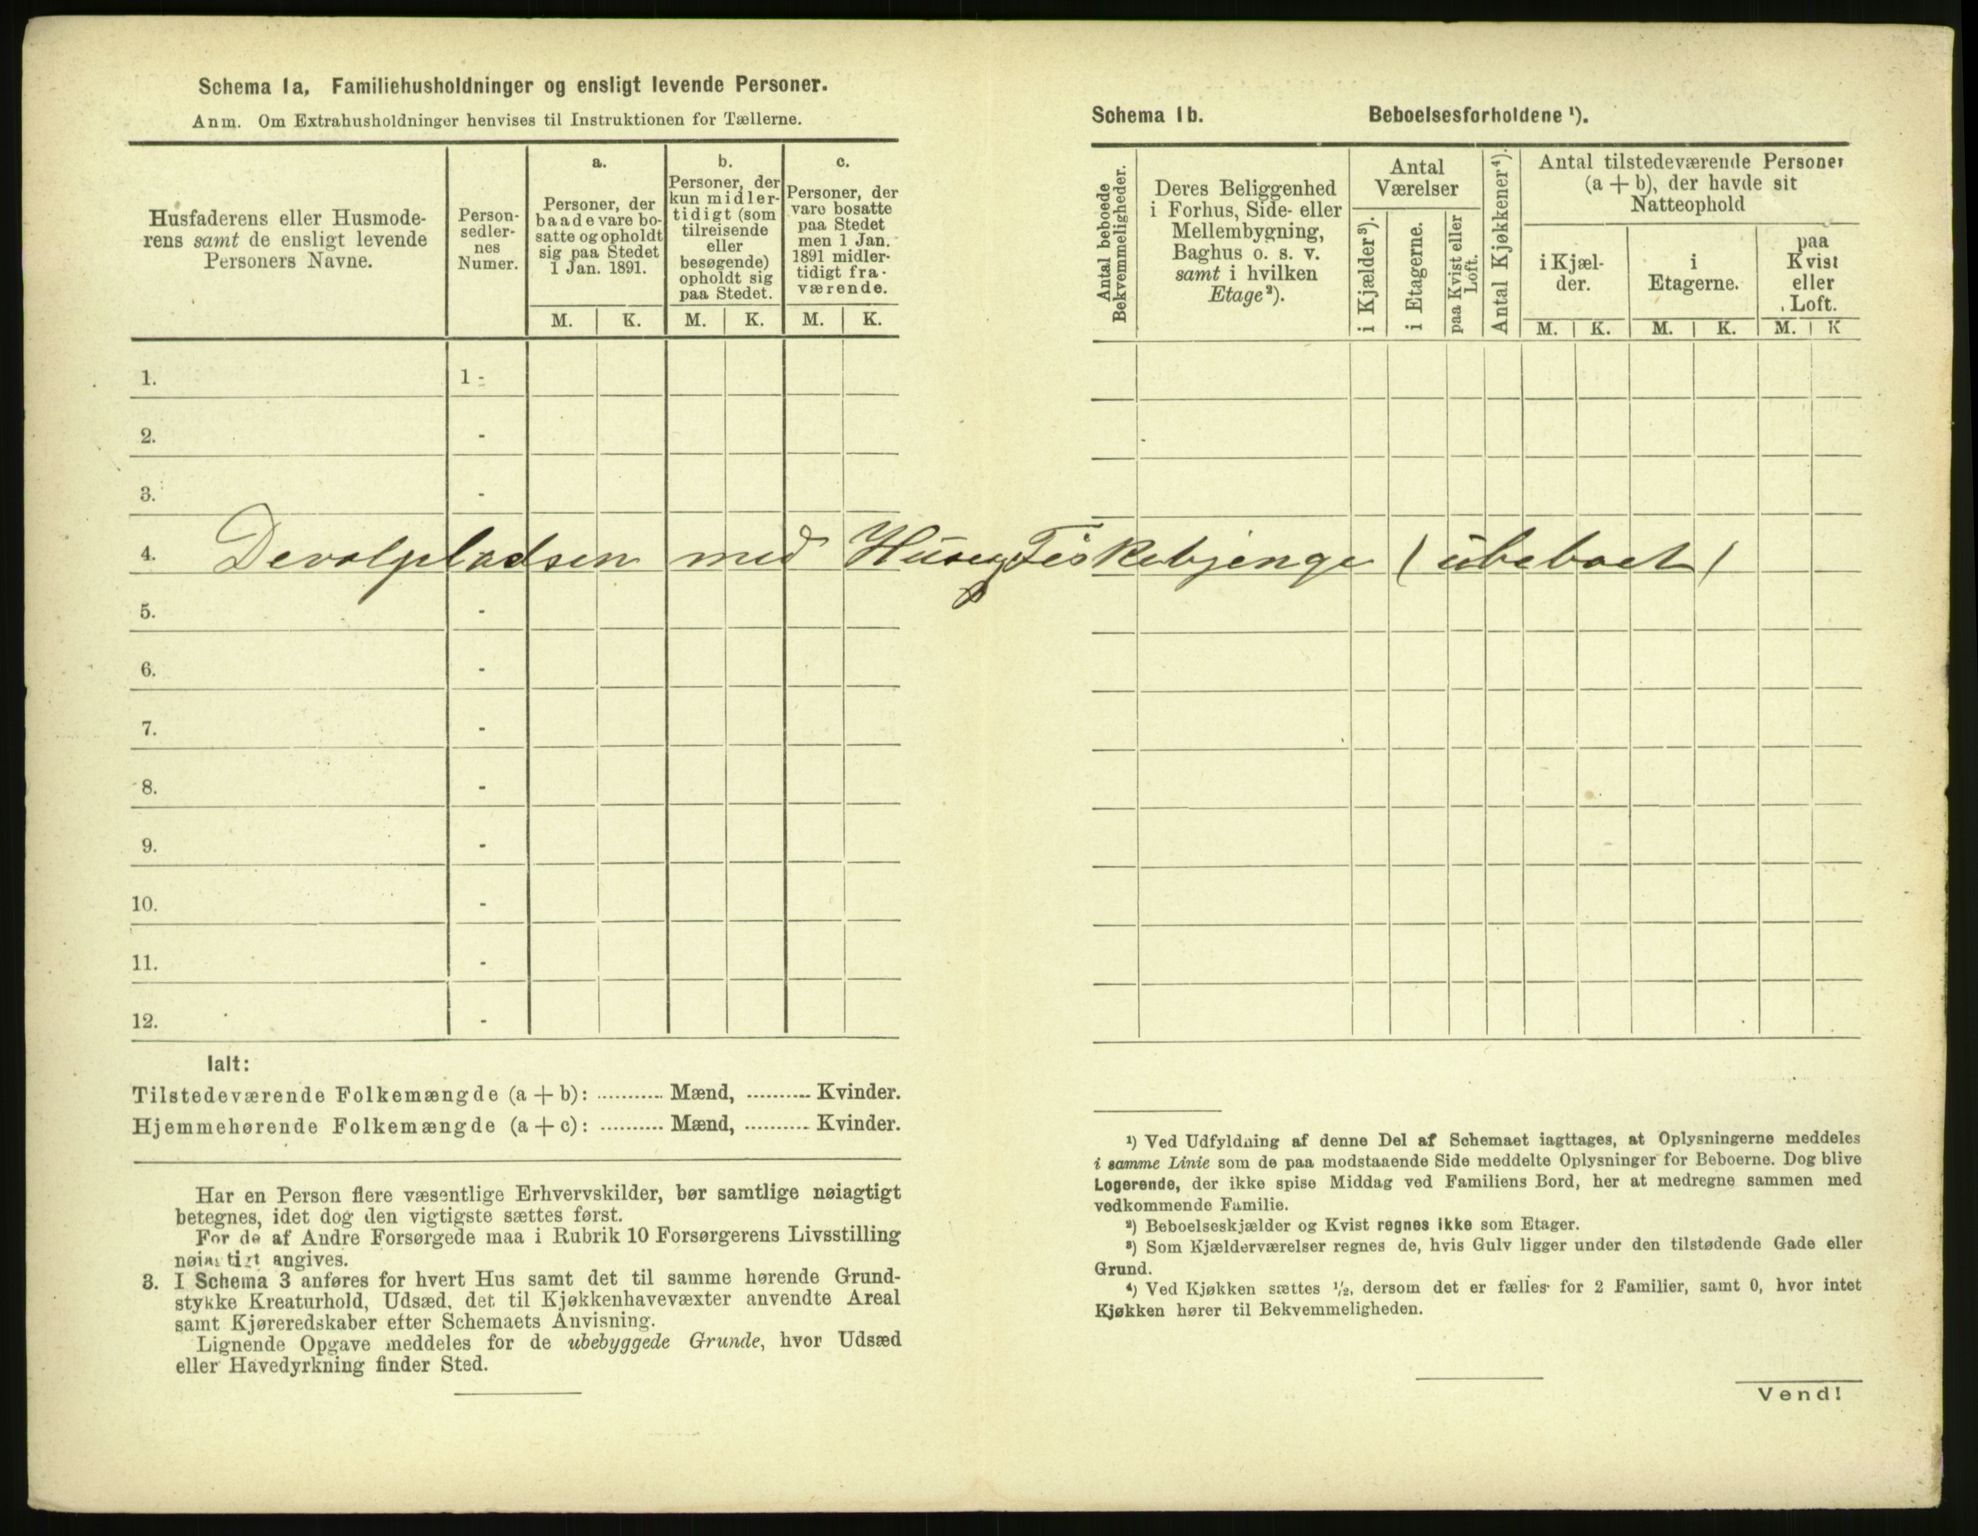 Schema 1a, Familiehusholdninger og ensligt levende Personer.
Anm. Om Extrahusholdninger henvises til Instruktionen for Tællerne.
Husfaderens eller Husmode-
rens samt de ensligt levende
Personers Navne.
Person-
sedler-
nes
Numer.
a.
Personer, der
baade vare bo-
satte og opholdt
sig paa Stedet
1 Jan. 1891.
b.
Personer, der
kun midler-
tidigt (som
tilreisende
eller
besøgende)
opholdt sig
paa Stedet.
c.
Personer, der
vare bosatte
paa Stedet
men 1 Jan.
1891 midler-
tidigt fra-
værende.
M. K. M. K. M. K.
1. 1 -
2. -
3. -
4. Devolpladsen med Huse Fiskebjenge (ubeboet)
5. -
6. -
7. -
8. -
9. -
10. -
11. -
12. -
Ialt:
Tilstedeværende Folkemængde (a + b): ........... Mænd, .......... Kvinder.
Hjemmehørende Folkemængde (a + c): .......... Mænd, .......... Kvinder.
Har en Person flere væsentlige Erhvervskilder, bør samtlige nøiagtigt
betegnes, idet dog den vigtigste sættes først.
For de af Andre Forsørgede maa i Rubrik 10 Forsørgerens Livsstilling
nøiagtigt angives.
3. I Schema 3 anføres for hvert Hus samt det til samme hørende Grund-
stykke Kreaturhold, Udsæd, det til Kjøkkenhavevæxter anvendte Areal
samt Kjøreredskaber efter Schemaets Anvisning.
Lignende Opgave meddeles for de ubebyggede Grunde, hvor Udsæd
eller Havedyrkning finder Sted.
Schema 1b. Beboelsesforholdene ¹).
Antal beboede
Bekvemmeligheder.
Deres Beliggenhed
i Forhus, Side- eller
Mellembygning,
Baghus o. s. v.
samt i hvilken
Etage²).
Antal
Værelser
i Kjælder³).
i Etagerne.
paa Kvist eller
Loft.
Antal Kjøkkener⁴).
Antal tilstedeværende Personer
(a + b), der havde sit
Natteophold
i Kjæl-
der.
i
Etagerne.
paa
Kvist
eller
Loft.
M. K. M. K. M. K
¹) Ved Udfyldning af denne Del af Schemaet iagttages, at Oplysningerne meddeles
i samme Linie som de paa modstaaende Side meddelte Oplysninger for Beboerne. Dog blive
Logerende, der ikke spise Middag ved Familiens Bord, her at medregne sammen med
vedkommende Familie.
²) Beboelseskjælder og Kvist regnes ikke som Etager.
³) Som Kjælderværelser regnes de, hvis Gulv ligger under den tilstødende Gade eller
Grund.
⁴) Ved Kjøkken sættes ½, dersom det er fælles for 2 Familier, samt 0, hvor intet
Kjøkken hører til Bekvemmeligheden.
Vend!